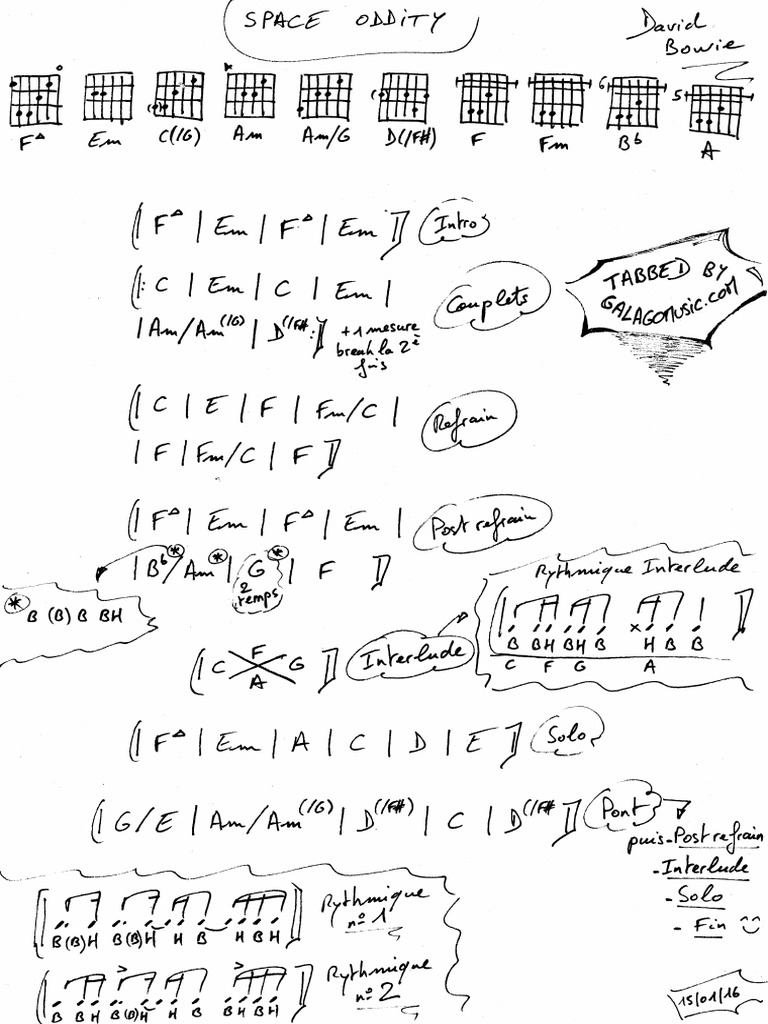 SPACE ODDITY
David Bowie
F△ Em C(/G) Am Am/G D(/F#) F Fm Bb A
6
5
| F△ | Em | F△ | Em | Intro
|: C | Em | C | Em | Couplets
| Am/Am(/G) | D(/F#) :| +1 mesure break la 2è fois
TABBED BY
GALAGOMUSIC.COM
| C | E | F | Fm/C | Refrain
| F | Fm/C | F |
| F△ | Em | F△ | Em | Post refrain
| Bb*/Am* | G* | F |
2 temps
* B (B) B BH
Rythmique Interlude
B BH BH B x H B B
C F G A
| C F A G | Interlude
| F△ | Em | A | C | D | E | Solo
| G/E | Am/Am(/G) | D(/F#) | C | D(/F#) | Pont
puis - Post refrain
- Interlude
- Solo
- Fin
B (B) H B (B) H H B H B H Rythmique n°1
B B H B (B) H H B B H B H Rythmique n°2
15/01/16